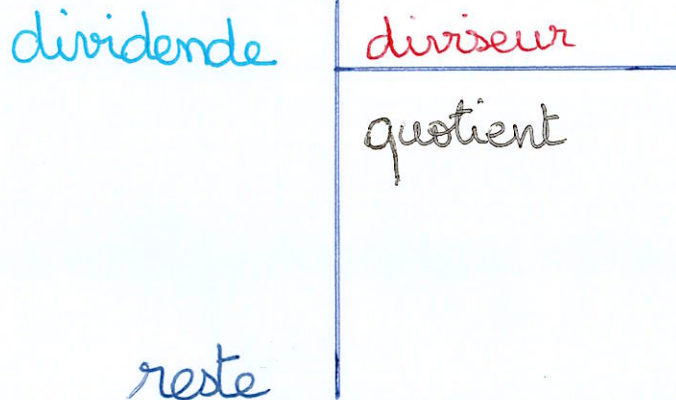 dividende
diviseur
quotient
reste